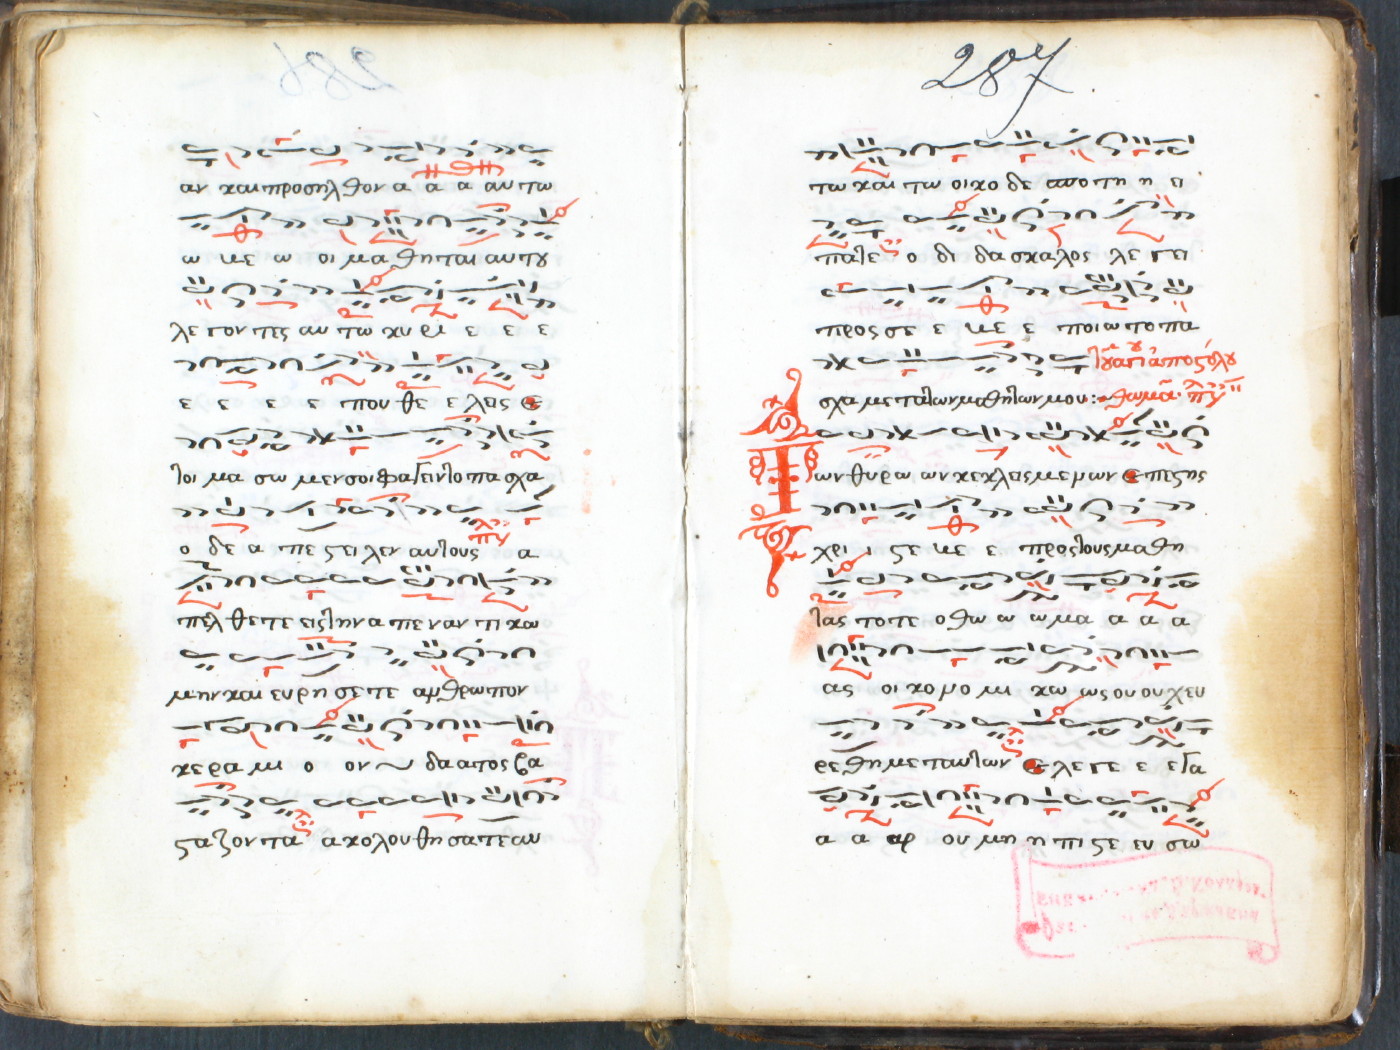 αν και προσηλθον α α α αυ τω
ω με ω οι μα θη ται αυ του
λε γον τες αυ τω κυ ρι ε ε ε
ε ε ε ε που θε ε λεις ε
τοι μα σω μεν σοι φαγειν το πα σχα
ο δε α πε στει λεν αυ τους α
πελ θε τε εις την α πε ναν τι κω
μην και ευ ρη σε τε αν θρω πον
κε ρα μι ο ον δα α τος βα
στα ζον τα α κο λου θη σα τε αυ
287
τω και τω οι κο δε σπο τη η ει
πατε ο δι δα σκα λος λε γει
προς σε ε με ε ποι ω το πα
σχα με τα των μαθητων μου :
του αγι αποστολου
θωμα
ων θυ ρω ων κε κλεισ με νων ε πε στης
χρι ι στε με ε προς τους μα θη
τας το τε ο θω ω ω μα α α α
ας οι κο νο μι κω ως ου ουχ ευ
ρε θη με τ αυ των ε λε γε ε ε γα
α α αρ ου μη η πι στε ευ σω